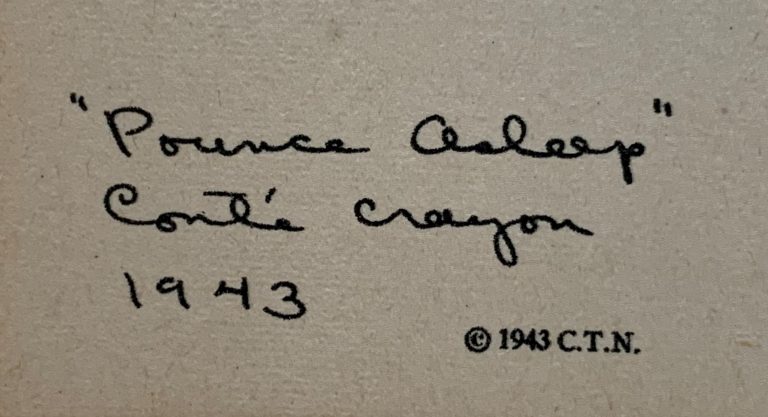 "Pounce Asleep"
Conté crayon
1943
© 1943 C.T.N.